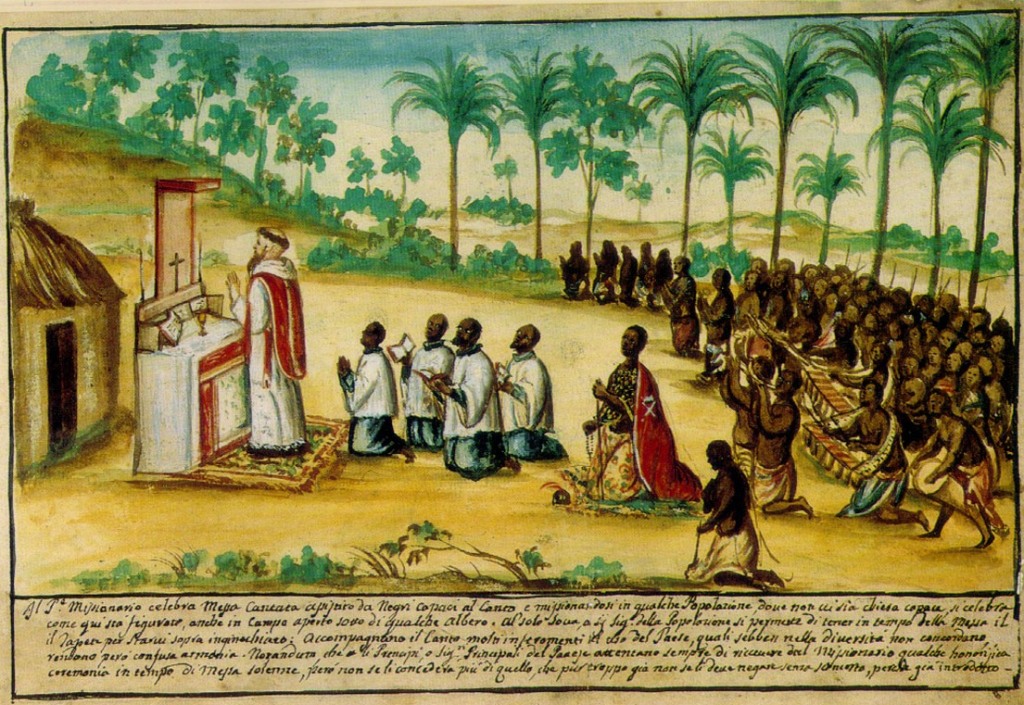 Il P.e Missionario celebra Messa Cantata assistito da Negri capaci al Canto, e missionandosi in qualche Popolazione doue non ui sia chiesa capace, si celebra
come qui sta figurato, anche in Campo aperto sotto di qualche Albero. Al solo Soua, o sig. della Popolazione si permette di tener in tempo della Messa il
il Tapeto per starui sopra inginochiato; Accompagnano il Canto molti instromenti ad uso del Paese, quali sebben nella diuersità non concordano,
rendono però confusa armonia. Notandum che Prencipi o Sig.ri Principali del Paese attentano sempre di riceuere dal Missionario qualche honorifica
ceremonia in tempo di Messa solenne, però non se li concederà più di quello, che pur troppo già non se li deue negare senza, perche già introdotto